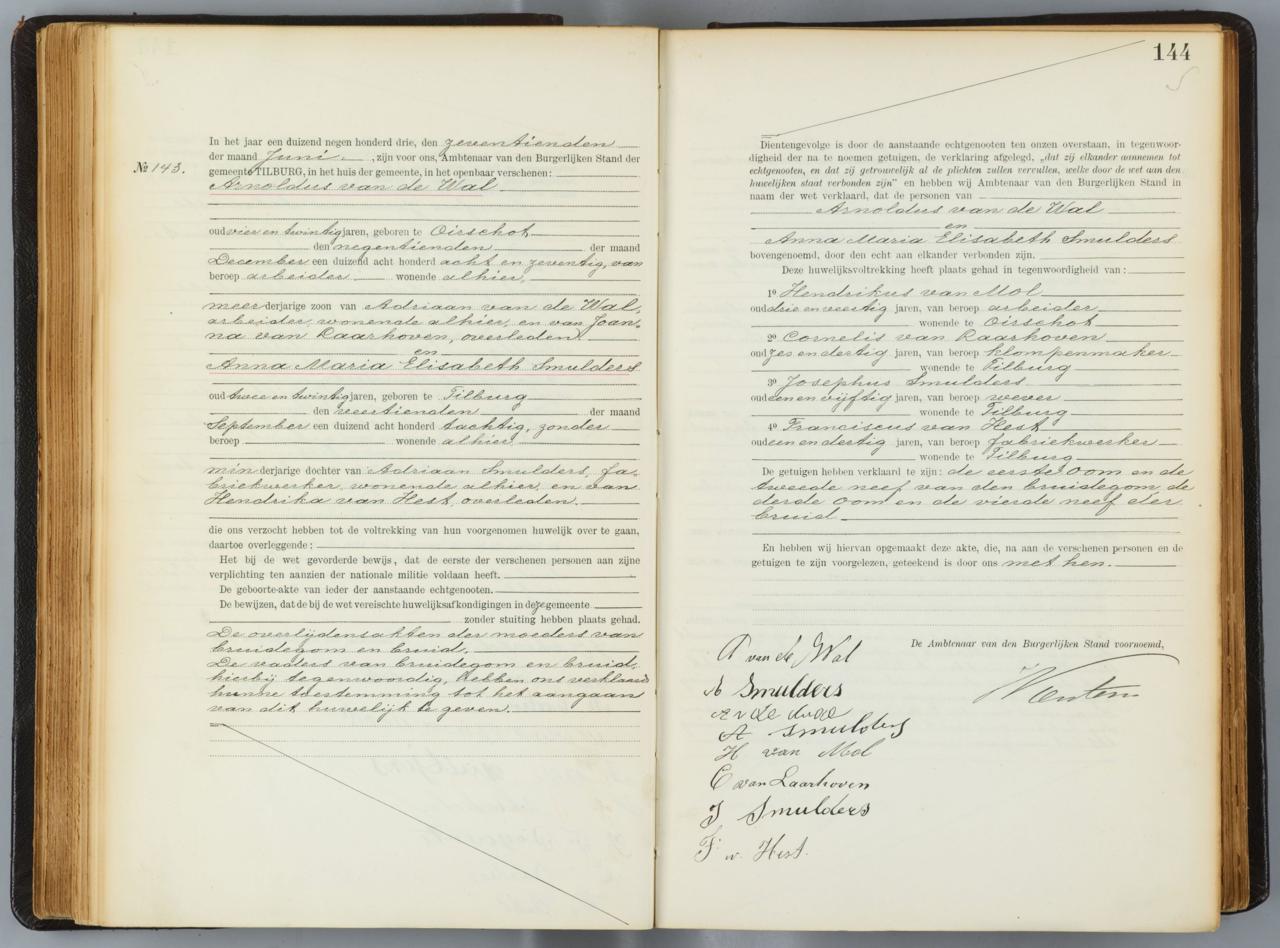 № 143.
In het jaar een duizend negen honderd drie, den zeventienden
der maand Juni, zijn voor ons, Ambtenaar van den Burgerlijken Stand der
gemeente TILBURG, in het huis der gemeente, in het openbaar verschenen:
Arnoldus van de Wal
oud vier en twintig jaren, geboren te Oirschot
den negentienden der maand
December een duizend acht honderd acht en zeventig, van
beroep arbeider wonende alhier,
meerderjarige zoon van Adriaan van de Wal,
arbeider, wonende alhier, en van Joan-
na van Laarhoven, overleden.
en
Anna Maria Elisabeth Smulders
oud twee en twintig jaren, geboren te Tilburg
den veertienden der maand
September een duizend acht honderd tachtig, zonder
beroep wonende alhier
minderjarige dochter van Adriaan Smulders, fa-
briekwerker, wonende alhier, en van
Hendrika van Hest, overleden.
die ons verzocht hebben tot de voltrekking van hun voorgenomen huwelijk over te gaan,
daartoe overleggende:
Het bij de wet gevorderde bewijs, dat de eerste der verschenen personen aan zijne
verplichting ten aanzien der nationale militie voldaan heeft.
De geboorte-akte van ieder der aanstaande echtgenooten.
De bewijzen, dat de bij de wet vereischte huwelijksafkondigingen in deze gemeente
zonder stuiting hebben plaats gehad.
De overlijdensakten der moeders van
bruidegom en bruid.
De vaders van bruidegom en bruid,
hierbij tegenwoordig, hebben ons verklaard
hunne toestemming tot het aangaan
van dit huwelijk te geven.
144
Dientengevolge is door de aanstaande echtgenooten ten onzen overstaan, in tegenwoor-
digheid der na te noemen getuigen, de verklaring afgelegd, „dat zij elkander aannemen tot
echtgenooten, en dat zij getrouwelijk al de plichten zullen vervullen, welke door de wet aan den
huwelijken staat verbonden zijn" en hebben wij Ambtenaar van den Burgerlijken Stand in
naam der wet verklaard, dat de personen van
Arnoldus van de Wal
en
Anna Maria Elisabeth Smulders
bovengenoemd, door den echt aan elkander verbonden zijn.
Deze huwelijksvoltrekking heeft plaats gehad in tegenwoordigheid van:
1º Hendrikus van Mol
oud drie en veertig jaren, van beroep arbeider
wonende te Oirschot
2º Cornelis van Laarhoven
oud zes en dertig jaren, van beroep klompenmaker
wonende te Tilburg
3º Josephus Smulders
oud een en vijftig jaren, van beroep wever
wonende te Tilburg
4º Franciscus van Hest
oud een en dertig jaren, van beroep fabriekwerker
wonende te Tilburg
De getuigen hebben verklaard te zijn: de eerste oom en de
tweede neef van den bruidegom, de
derde oom en de vierde neef der
bruid
En hebben wij hiervan opgemaakt deze akte, die, na aan de verschenen personen en de
getuigen te zijn voorgelezen, geteekend is door ons met hen.
De Ambtenaar van den Burgerlijken Stand voornoemd,
A van de Wal
A Smulders
A v de
A Smulders
H van Mol
C van Laarhoven
J Smulders
F. v. Hest.